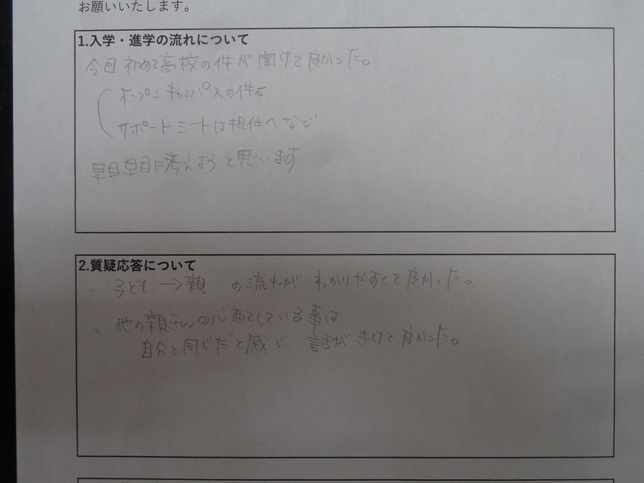 お願いいたします。
1.入学・進学の流れについて
今回初めて高校の件が聞けてよかった。
オープンキャンパスの件や
サポートミートは担任へなど
早目早目に考えようと思います
2.質疑応答について
、子ども→親 の流れが わかりやすくてよかった。
、他の親さんの心配している事は
自分と同じだと感じ 話がきけてよかった。